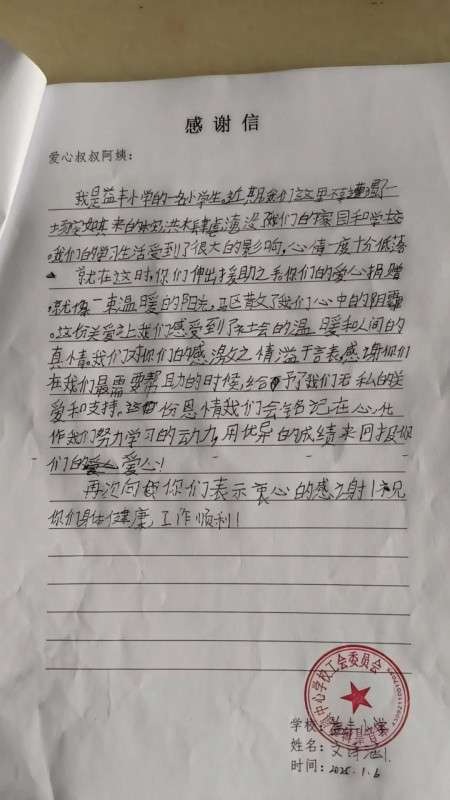 感谢信
爱心叔叔阿姨：
我是益丰小学的一名小学生。近期我们这里不幸遭遇了一
场突如其来的洪水肆虐淹没了我们的家园和学校
。我们的学习生活受到了很大的影响，心情一度十分低落
就在这时，你们伸出援助之手你们的爱心捐赠
，就像一束温暖的阳光，驱散了我们心中的阴霾
。这份关爱让我们感受到了社会的温暖和人间的
真情。我们对你们的感激之情溢于言表，感谢你们
在我们最需要帮助的时候，给予了我们无私的关
爱和支持。这份恩情我们会铭记在心，化
作我们努力学习的动力，用优异的成绩来回报你
们的爱心！
再次向你们表示衷心的感谢！祝
你们身体健康，工作顺利！
中心学校工会委员会
学校：益丰小学
姓名：文
时间：2025.1.6